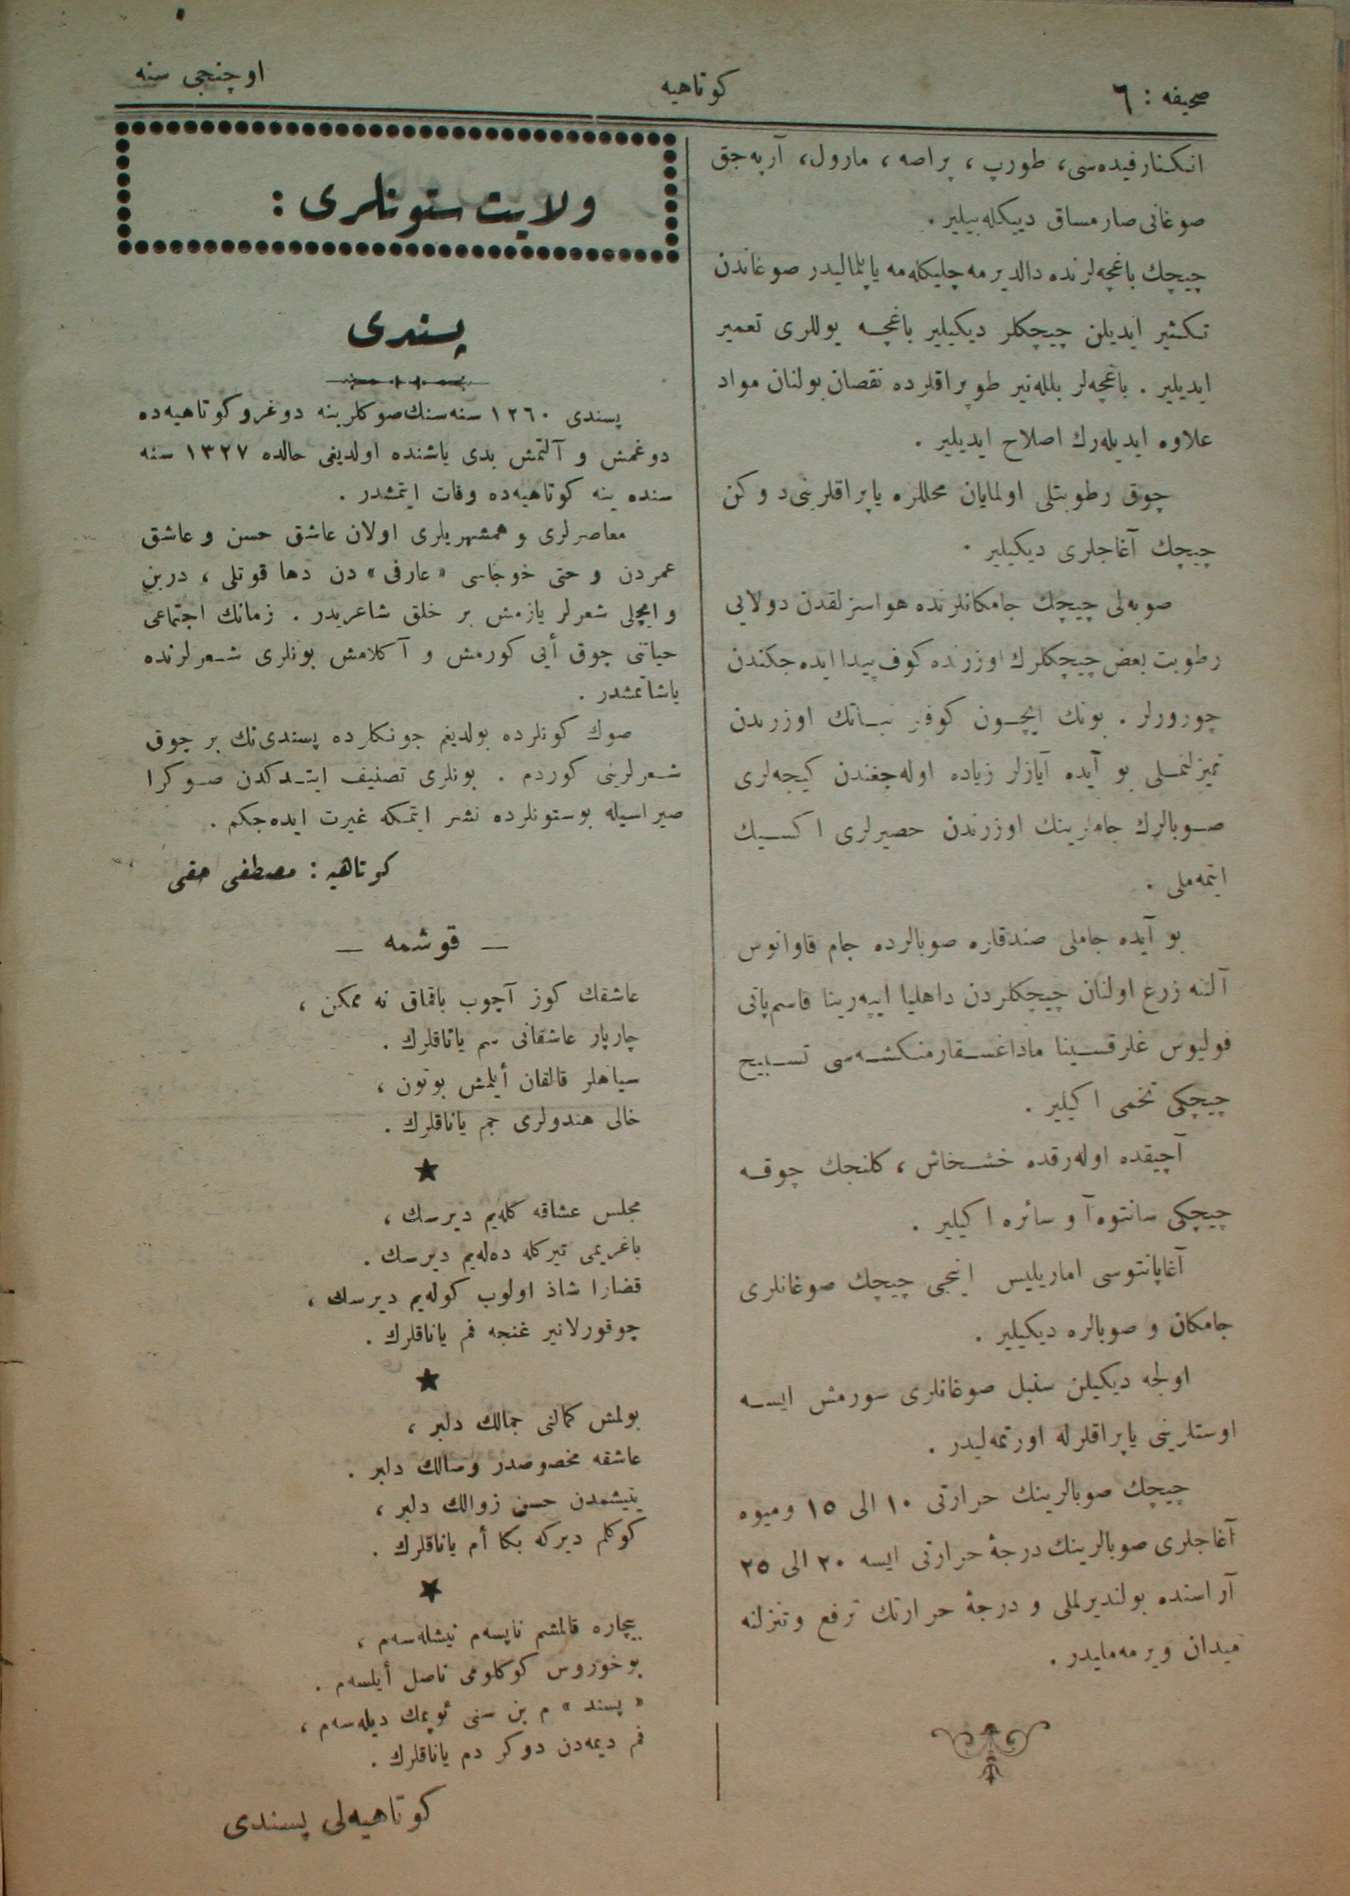 صحیفه : ٦
كوتاهیه
اوچنجی سنه
انكنار فیده‌سی، طورپ ، پراصه ، مارول، آرپه‌جق
صوغانی صارمساق دیكیله‌بیلیر .
چیچك باغچه‌لرنده دالدیرمه چلیكله‌مه یاپلمالیدر صوغاندن
تكثیر ایدیلن چیچكلر دیكیلیر باغچه یوللری تعمیر
ایدیلیر . باغچه‌لر بلله‌نیر طوپراقلرده نقصان بولنان مواد
علاوه ایدیله‌رك اصلاح ایدیلیر .
چوق رطوبتلی اولمایان محللره یاپراقلرینی دوكن
چیچك آغاجلری دیكیلیر .
صوبه‌لی چیچك جامكانلرنده هواسزلقدن دولایی
رطوبت بعض چیچكلرك اوزرنده كوف پیدا ایده‌جكندن
چورورلر . بونك ایچون كوفی نباتك اوزرندن
تمیزلنملی بو آیده آیازلر زیاده اوله‌جغندن كیجه‌لری
صوبالرك جاملرینك اوزرندن حصیرلری اكسیك
ایتمه‌ملی .
بو آیده جاملی صندقلره صوبالرده جام فاوانوس
آلتنه زرع اولنان چیچكلردن داهلیا ایپه‌رینا قاسم‌پاتی
فولیوس غلرقسینا ماداغسقارمنكشه‌سی تسبیح
چیچكی تخمی اكیلیر .
آچیقده اوله‌رقده خشخاش ، كلنجك چوقه
چیچكی سانتوه‌آ و سائره اكیلیر .
آغاپانتوسی اماریلیس اینجی چیچك صوغانلری
جامكان و صوبالره دیكیلیر .
اولجه دیكیلن سنبل صوغانلری سورمش ایسه
اوستلرینی یاپراقلرله اورتمه‌لیدر .
چیچك صوبالرینك حرارتی ١٠ الی ١٥ ومیوه
آغاجلری صوبالرینك درجۀ حرارتی ایسه ٢٠ الی ٢٥
آراسنده بولندیرلملی و درجۀ حرارتك ترفع وتنزلنه
میدان ویرمه‌مایدر .
ولایت ستونلری :
پسندی
پسندی ١٢٦٠ سنه‌سنك صوكلرینه دوغرو كوتاهیه‌ده
دوغمش و آلتمش یدی یاشنده اولدیغی حالده ١٣٢٧ سنه
سنده ینه كوتاهیه‌ده وفات ایتمشدر .
معاصرلری و همشهریلری اولان عاشق حسن و عاشق
عمردن و حتی خوجاسی « عارفی » دن دها قوتلی ، درین
و ایچلی شعرلر یازمش بر خلق شاعریدر . زمانك اجتماعی
حیاتنی چوق أیی كورمش و آكلامش بونلری شعرلرنده
یاشاتمشدر .
صوك كونلرده بولدیغم جونكلرده پسندی‌نك بر چوق
شعرلرینی كوردم . بونلری تصنیف ایتدكدن صوكرا
صیراسیله بوستونلرده نشر ایتمكه غیرت ایده‌جكم .
كوتاهیه : مصطفی حقی
— قوشمه —
عاشقك كوز آچوب باقماق نه ممكن ،
چارپار عاشقانی سم یاناقلرك .
سیاهلر قالقان أیلمش بوتون ،
خالی هندولری جم یاناقلرك .
★
مجلس عشاقه كله‌یم دیرسك ،
باغریمی تیركله ده‌له‌یم دیرسك .
قضارا شاذ اولوب كوله‌یم دیرسك ،
چوقورلانیر غنجه فم یاناقلرك .
★
بولمش كمالنی جمالك دلبر ،
عاشقه مخصوصدر وصالك دلبر .
یتیشمدن حسن زوالك دلبر ،
كوكلم دیركه بكا أم یاناقلرك .
★
بیچاره قالمشم ناپسه‌م نیشله‌سه‌م ،
بو خوروس كوكلومی ناصل أیلسه‌م .
« پسند » م بن سنی ئوپمك دیله‌سه‌م ،
فم دیمه‌دن دوكر دم یاناقلرك .
كوتاهیه‌لی پسندی